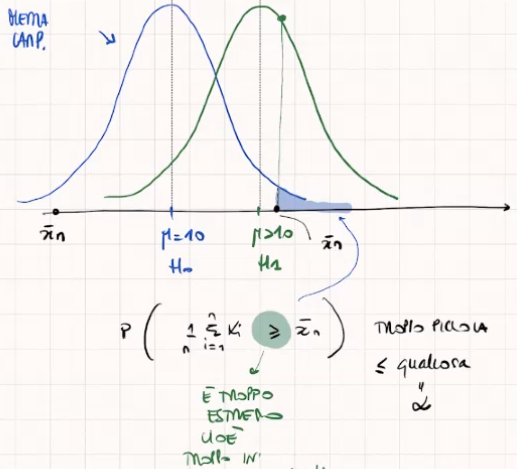 MEDIA
CAMP.
x̄n
μ=10
H₀
μ>10
H₁
x̄n
P ( 1/n Σ i=1 n Xi ≥ x̄n )
TROPPO PICCOLA
≤ qualcosa
"
α
È TROPPO
ESTREMO
CIOÈ
TROPPO IN